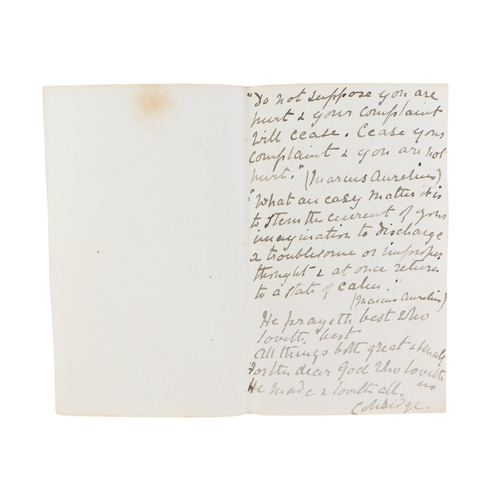 "Do not suppose you are
hurt & your complaint
will cease. Cease your
complaint & you are not
hurt." (Marcus Aurelius)
"What an easy matter it is
to stem the current of your
imagination to discharge
a troublesome or improper
thought & at once return
to a state of calm."
(Marcus Aurelius)
He prayeth best who
loveth best
All things both great & small
For the dear God who loveth
us
He made & loveth all.
Coleridge.